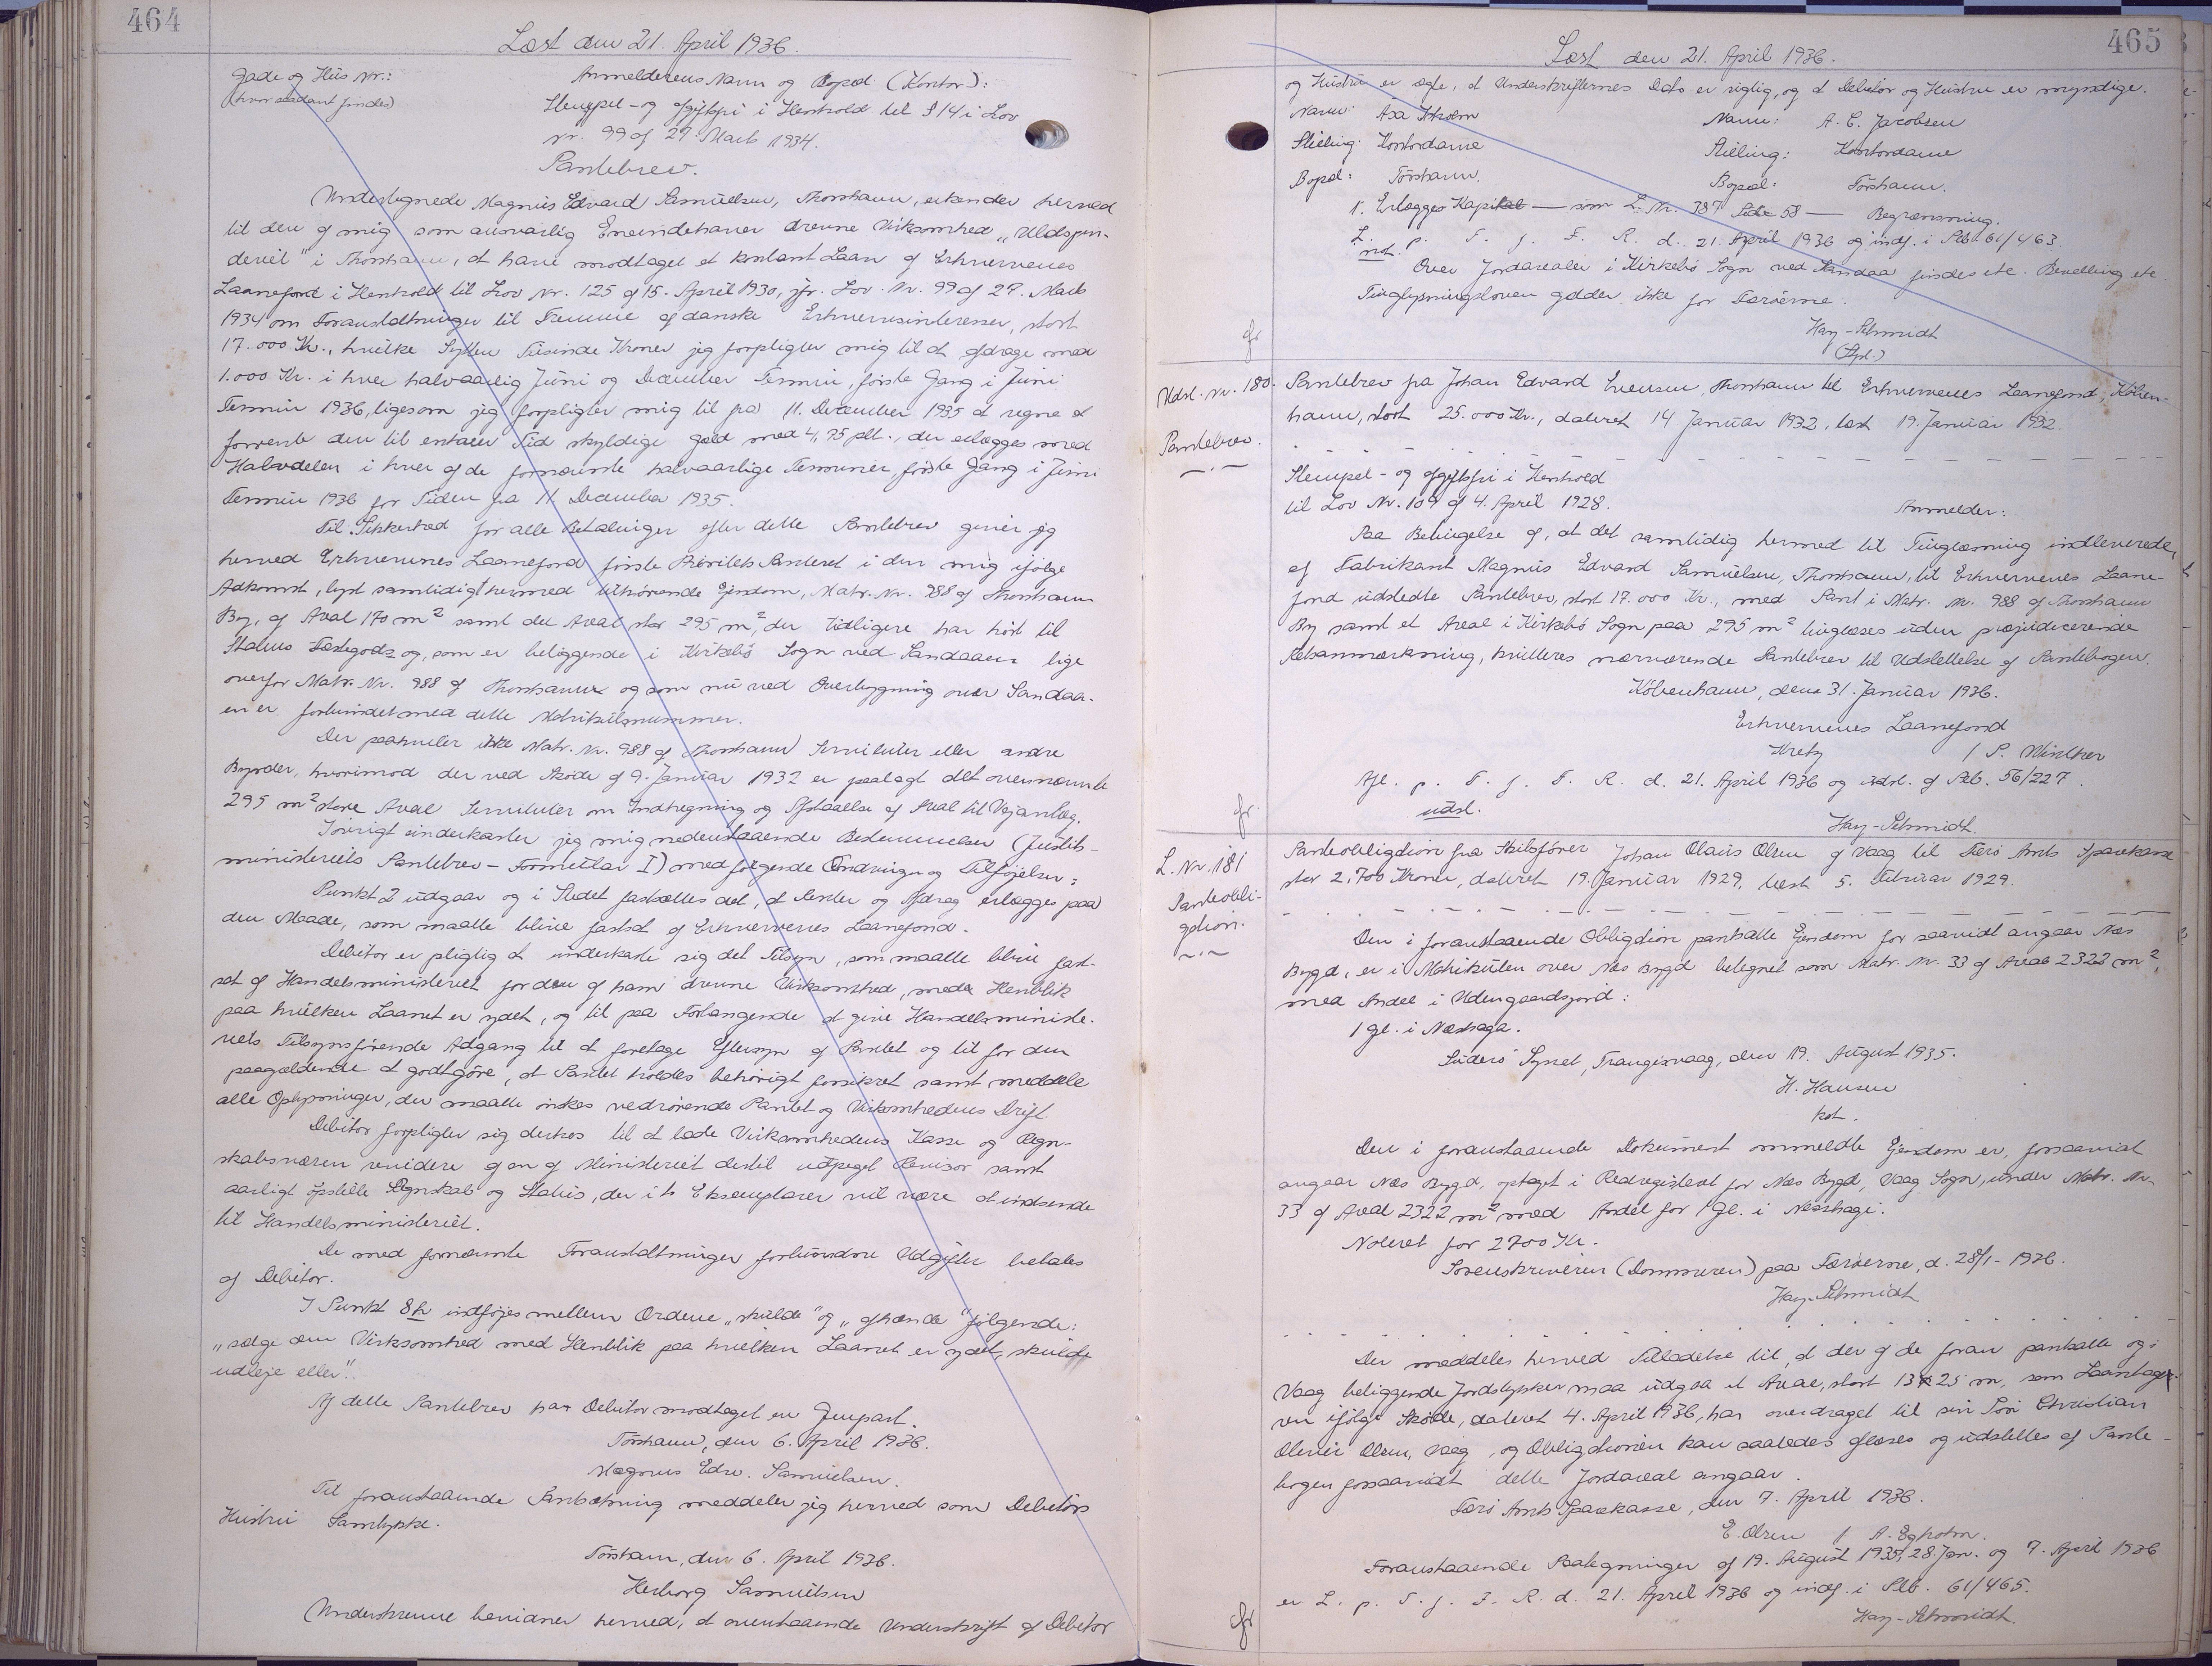 464
Læst den 21. April 1936.
Gade og Hus Nr.:
(hvor saadant findes)
Anmelderens Navn og Bopæl (Kontor):
Stempel- og afgiftsfri i Henhold til § 14 i Lov
Nr. 99 af 27. Marts 1934.
Pantebrev.
Undertegnede Magnus Edvard Samuelsen, Thorshavn, erkender herved
til den af mig som ansvarlig Eneindehaver drevne Virksomhed „Uldspin-
deriet" i Thorshavn, at have modtaget et kontant Laan af Erhvervenes
Laanefond i Henhold til Lov Nr. 125 af 15. April 1930, jfr. Lov Nr. 99 af 27. Marts
1934 om Foranstaltninger til Fremme af danske Erhvervsinteresser, stort
17.000 Kr., hvilke Sytten Tusinde Kroner jeg forpligter mig til at afdrage med
1.000 Kr. i hver halvaarlig Juni og December Termin, første Gang i Juni
Termin 1936, ligesom jeg forpligter mig til fra 11. December 1935 at regne at
forrente den til enhver Tid skyldige Gæld med 4,75 pCt., der erlægges med
Halvdelen i hver af de fornævnte halvaarlige Terminer, første Gang i Juni
Termin 1936 for Tiden fra 11 December 1935.
Til Sikkerhed for alle Betalinger efter dette Pantebrev giver jeg
herved Erhvervenes Laanefond første Prioritets Panteret i den mig ifølge
Adkomst, lyst samtidigt hermed tilhørende Ejendom, Matr. Nr. 988 af Thorshavn
By, af Areal 170 m² samt det Areal stor 295 m², der tidligere har hørt til
Statens Fæstegods og, som er beliggende i Kirkebø Sogn ved Sandaaen lige
overfor Matr. Nr. 988 af Thorshavn og som nu ved Overbygning over Sandaa-
en er forbundet med dette Matrikulsnummer.
Der paahviler ikke Matr. Nr. 988 af Thorshavn Servituter eller andre
Byrder, hvorimod der ved Skøde af 9. Januar 1932 er paalagt det ovennævnte
295 m² store Areal Servituter om Indhegning og Afstaaelse af Areal til Vejanlæg.
Iøvrigt underkaster jeg mig nedenstaaende Bestemmelser (Justits-
ministeriets Pantebrev - Formular I) med følgende Ændringer og Tilføjelser:
Punkt 2 udgaar og i Stedet fastsættes det, at Renter og Afdrag erlægges paa
den Maade, som maatte blive fastsat af Erhvervenes Laanefond.
Debitor er pligtig at underkaste sig det Tilsyn, som maatte blive fast-
sat af Handelsministeriet for den af ham drevne Virksomhed, med Henblik
paa hvilken Laanet er ydet, og til paa Forlangende at give Handelsministe-
riets Tilsynsførende Adgang til at foretage Eftersyn af Pantet og til for den
paagældende at godtgøre, at Pantet holdes behørigt forsikret samt meddele
alle Oplysninger, der maatte ønskes vedrørende Pantet og Virksomhedens Drift.
Debitor forpligter sig derhos til at lade Virksomhedens Kasse og Regn-
skabsvæsen revidere af en af Ministeriet dertil udpeget Revisor samt
aarligt opstille Regnskab og Status, der i to Eksemplarer vil være at indsende
til Handelsministeriet.
De med fornævnte Foranstaltninger forbundne Udgifter betales
af Debitor.
I Punkt 8 h indføjes mellem Ordene „skulde" og „afhænde" følgende:
„sælge den Virksomhed med Henblik paa hvilken Laanet er ydet, skulde
udleje eller".
Af dette Pantebrev har Debitor modtaget en Genpart.
Tórshavn, den 6. April 1936.
Magnus Edv. Samuelsen.
Til foranstaaende Pantsætning meddeler jeg herved som Debitors
Hustru Samtykke.
Tórshavn, den 6. April 1936.
Herborg Samuelsen
Underskrevne bevidner herved, at ovenstaaende Underskrift af Debitor
465
Læst den 21. April 1936.
og Hustru er ægte, at Underskrifternes Dato er rigtig, og at Debitor og Hustru er myndige.
Navn: Asa
Navn: A. C. Jacobsen
Stilling: Kontordame
Stilling: Kontordame
Bopæl: Tórshavn.
Bopæl: Tórshavn.
1. Erlægges Kapital — som L. Nr. 387 Side 58 — Begrænsning.
L. p. T. f. F. R. d. 21. April 1936 og indf. i Pb. 61/463.
not.
Over Jordarealer i Kirkebø Sogn ved Sandaa findes etc. Bevilling etc.
Tinglysningsloven gælder ikke for Færøerne.
Hay-Schmidt
(Spl.)
gfr
Udsl. Nr. 180.
Pantebrev.
Pantebrev fra Johan Edvard Evensen, Thorshavn til Erhvervenes Laanefond, Køben-
havn, stort 25.000 Kr., dateret 14 Januar 1932, læst 19. Januar 1932.
Stempel- og afgiftsfri i Henhold
til Lov Nr. 109 af 4. April 1928.
Anmelder:
Paa Betingelse af, at det samtidig hermed til Tinglæsning indleverede,
af Fabrikant Magnus Edvard Samuelsen, Thorshavn, til Erhvervenes Laane-
fond udstedte Pantebrev, stort 17.000 Kr., med Pant i Matr. Nr. 988 af Thorshavn
By samt et Areal i Kirkebø Sogn paa 295 m² tinglæses uden præjudicerende
Retsanmærkning, kvitteres nærværende Pantebrev til Udslettelse af Pantebogen.
København, den 31. Januar 1936.
Erhvervenes Laanefond
Kretz / P. Winther
Afl. p. T. f. F. R. d. 21. April 1936 og udsl. af Pb. 56/227.
udsl.
Hay-Schmidt.
gfr
L. Nr. 181
Panteobli-
gation.
Panteobligation fra Skibsfører Johan Olaus Olsen af Vaag til Færø Amts Sparekasse
stor 2.700 Kroner, dateret 19. Januar 1929, læst 5. Februar 1929.
Den i foranstaaende Obligation pantsatte Ejendom for saavidt angaar Næs
Bygd, er i Matrikulen over Næs Bygd betegnet som Matr. Nr. 33 af Areal 2322 m²,
med Andel i Udengaardsjord:
1 gl. i Næshaga.
Suderø Syssel, Trangisvaag, den 19. August 1935.
H. Hansen
kst.
Den i foranstaaende Dokument ommeldte Ejendom er, forsaavidt
angaar Næs Bygd, optaget i Realregisteret for Næs Bygd, Vaag Sogn, under Matr. Nr.
33 af Areal 2322 m² med Andel for 1 gl. i Næshagi.
Noteret for 2700 Kr.
Sorenskriveren (Dommeren) paa Færøerne, d. 28/1 - 1936.
Hay-Schmidt
Der meddeles herved Tilladelse til, at der af de foran pantsatte og i
Vaag beliggende Jordstykker maa udgaa et Areal, stort 13 x 25 m, som Laantage-
ren ifølge Skøde, dateret 4. April 1936, har overdraget til sin Søn Christian
Olsen, Vaag, og Obligationen kan saaledes aflæses og udslettes af Pante-
bogen forsaavidt dette Jordareal angaar.
Færø Amts Sparekasse, den 7. April 1936.
E. Olsen / A. Egholm.
Foranstaaende Paategninger af 19. August 1935, 28. Jan. og 7. April 1936
er L. p. T. f. F. R. d. 21. April 1936 og indf. i Pb. 61/465.
Hay-Schmidt.
gfr